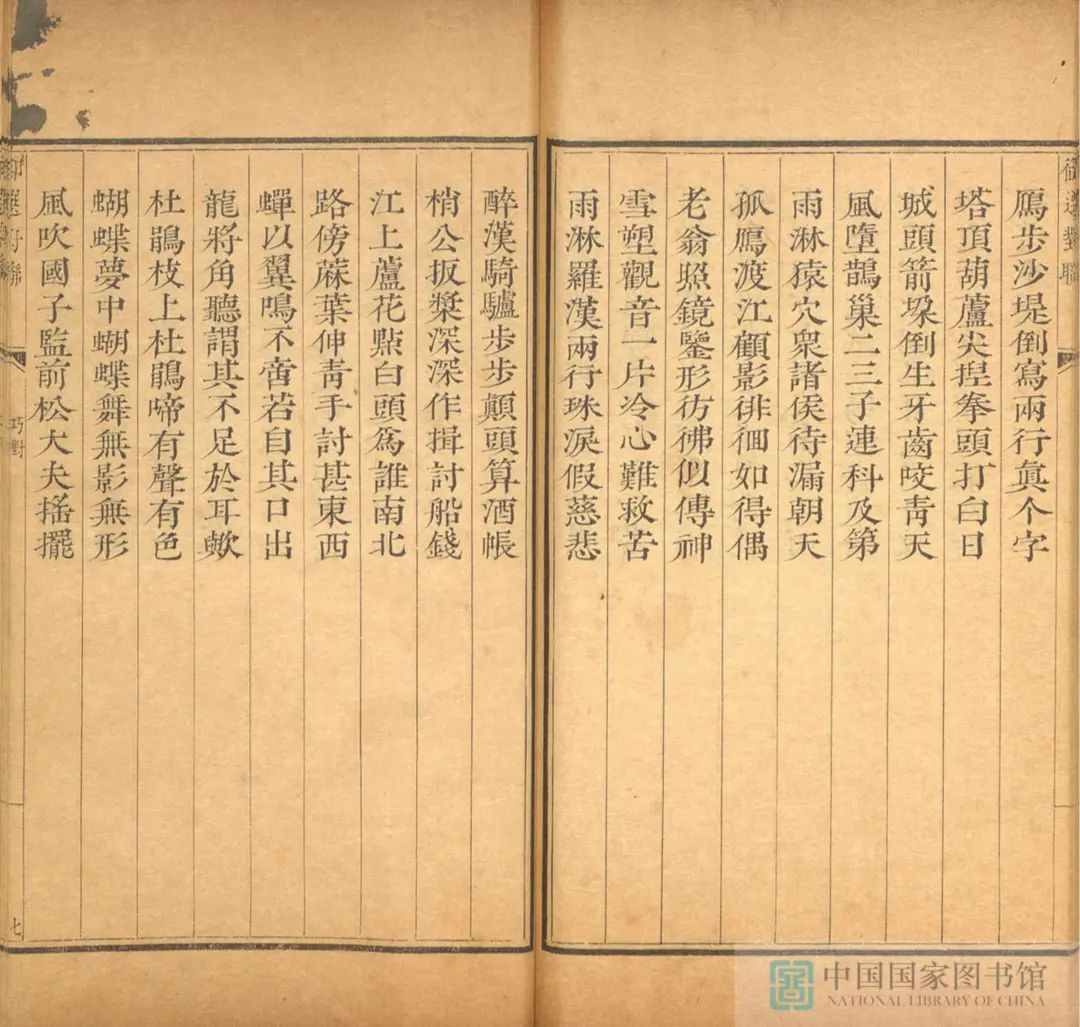 鴈步沙堤倒寫兩行眞个字
塔頂葫蘆尖揑拳頭打白日
城頭箭垜倒生牙齒咬靑天
風墮鵲巢二三子連科及第
雨淋猿穴衆諸侯待漏朝天
孤鴈渡江顧影徘徊如得偶
老翁照鏡鑒形彷彿似傳神
雪塑觀音一片冷心難救苦
雨淋羅漢兩行珠淚假慈悲
醉漢騎驢步步顚頭算酒帳
梢公扳槳深深作揖討船錢
江上蘆花㸃白頭爲誰南北
路傍蔴葉伸靑手討甚東西
蟬以翼鳴不啻若自其口出
龍將角聽謂其不足於耳歟
杜鵑枝上杜鵑啼有聲有色
蝴蝶夢中蝴蝶舞無影無形
風吹國子監前松大夫搖擺
巧對
七
中国国家图书馆
NATIONAL LIBRARY OF CHINA